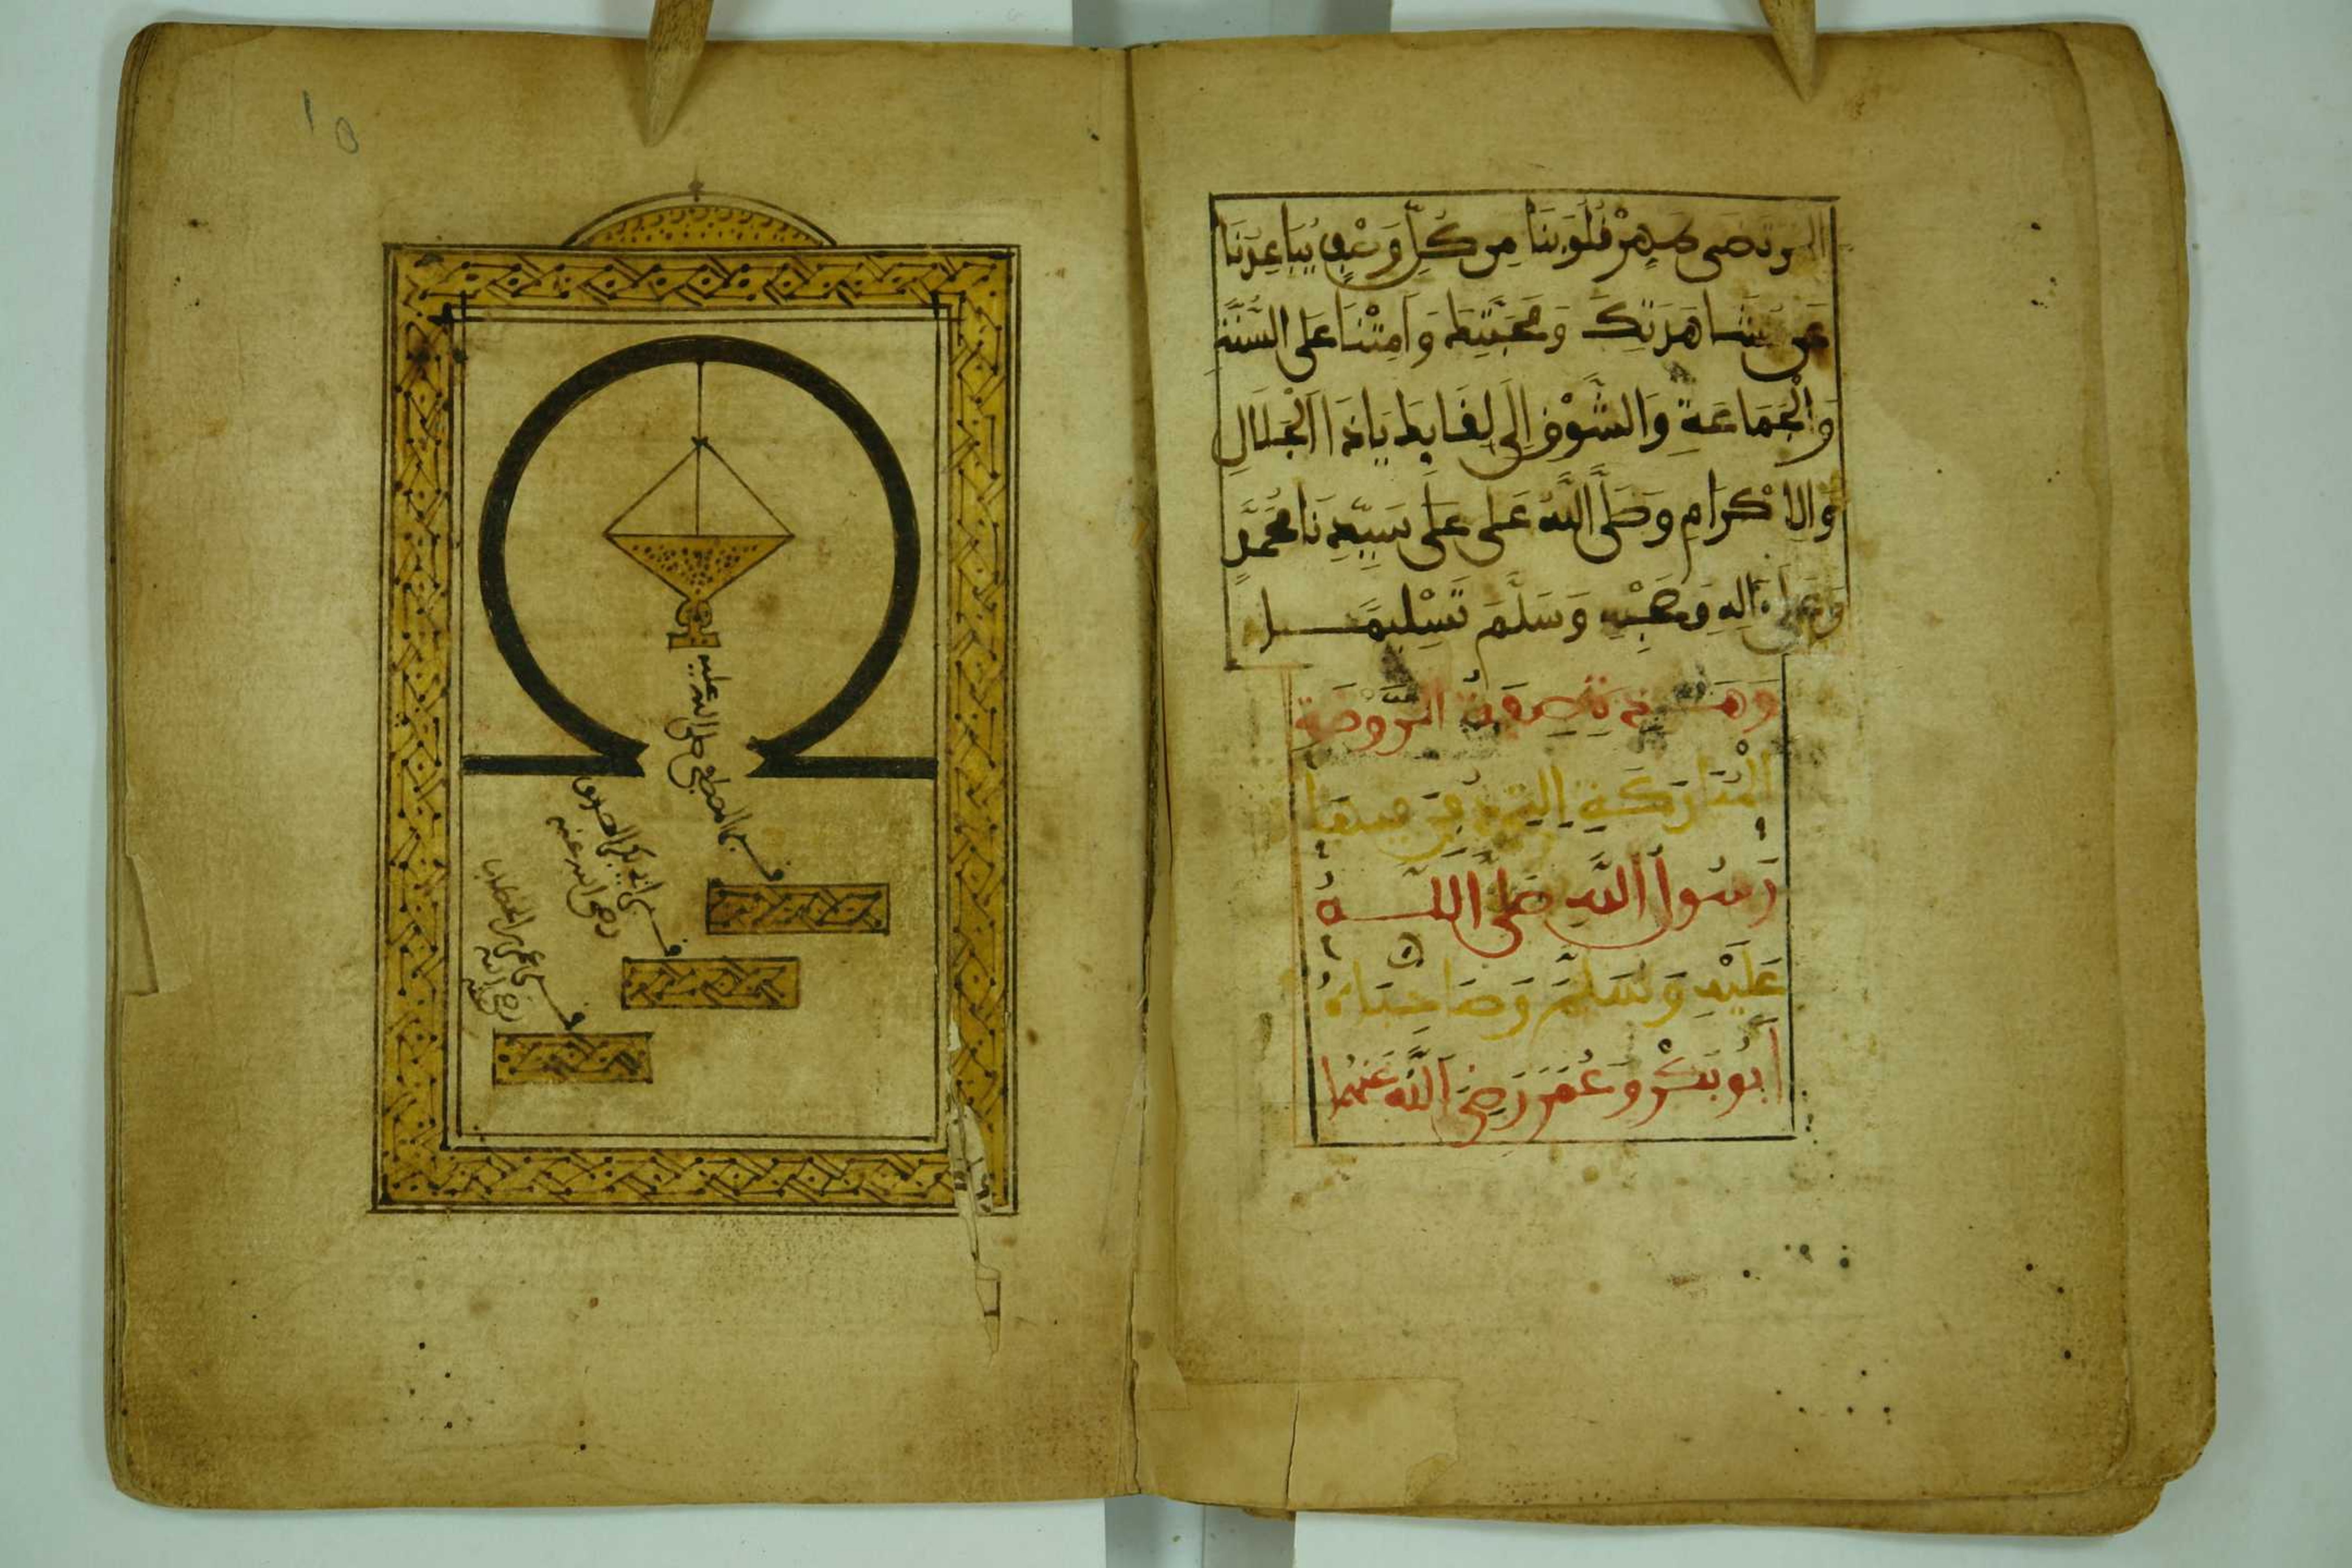 المرتضى طهر قلوبنا من كل وصف يباعدنا
عن مشاهدتك ومحبتك وامتنا على السنة
والجماعة والشوق الى لقايك ياذا الجلال
والاكرام وصلى الله على على سيدنا محمد
وعلى ءاله وصحبه وسلم تسليما
وهذه صفة الروضة
المباركة التي دفن فيها
رسول الله صلى الله
عليه وسلم وصاحباه
أبو بكر وعمر رضي الله عنهما
١٥
قبر المصطفى صلى الله عليه
قبر ابي بكر الصديق
رضي الله عنه
قبر عمر بن الخطاب
رضي الله عنه